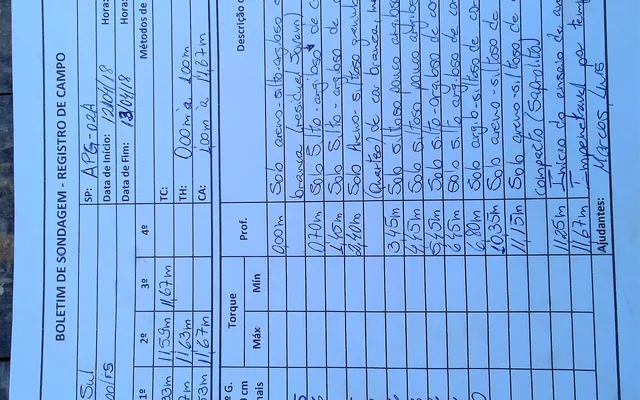 BOLETIM DE SONDAGEM - REGISTRO DE CAMPO
Sul
SP: APG-02A
Hora:
00/FS
Data de Início: 12/04/18
Hora:
Data de Fim: 13/04/18
1º 2º 3º 4º
Métodos de
33m 11,59m 11,67m TC:
7m 11,63m TH: 0,00m à 1,00m
53m 11,67m CA: 1,00m à 11,67m
º G.
0 cm
mais
Torque
Máx Mín
Prof.
Descrição
0,00m Solo areno-silto-argiloso
branca (residual Jovem)
0,70m Solo Silto-argiloso de c
1,45m Solo Silto-argiloso de
2,40m Solo Areno-siltoso
(Quartzo) de cor branca,
3,45m Solo Siltoso pouco argiloso
4,45m Solo siltoso pouco argiloso
5,45m Solo Silto-argiloso de cor
6,45m Solo silto argiloso de cor
6,80m Solo argilo-siltoso de cor
10,35m Solo areno-siltoso de
11,15m Solo areno-siltoso de
compacto (Saprolito)
11,25m Início do ensaio de
11,67m Impenetrável por temp
Ajudantes: Marcos, Luis